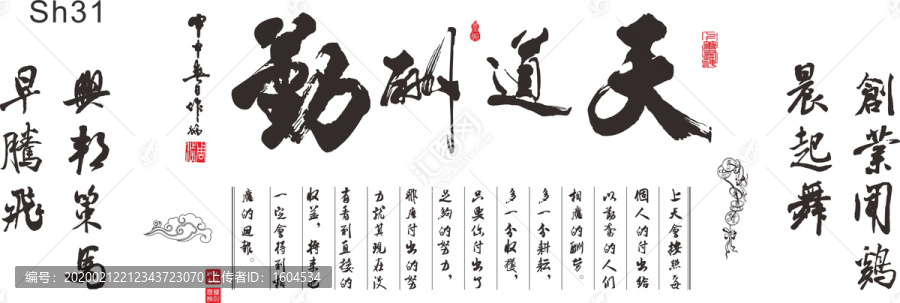 Sh31
天道酬勤
創業聞鷄
晨起舞
上天會按照每
個人的付出給
以勤奮的人們
相應的酬勞。
多一分耕耘，
多一分收獲，
只要你付出了
足夠的努力，
那麼付出的努
力就算現在沒
有看到直接的
收益，將來也
一定會得到相
應的回報。
興邦策馬
早騰飛
编号：20200212212343723070 上传者ID：1604534